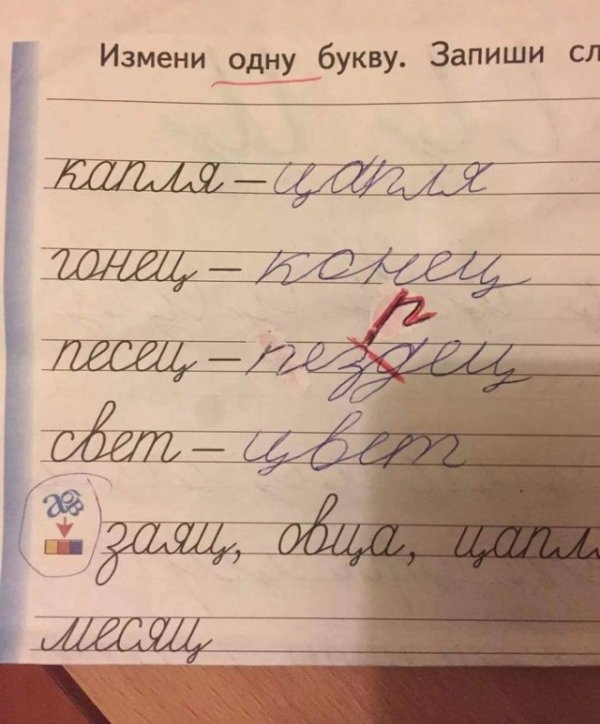 Измени одну букву. Запиши сл
капля – цапля
гонец – конец
р
песец – пездец
свет – цвет
абв
заяц, овца, цапл
месяц